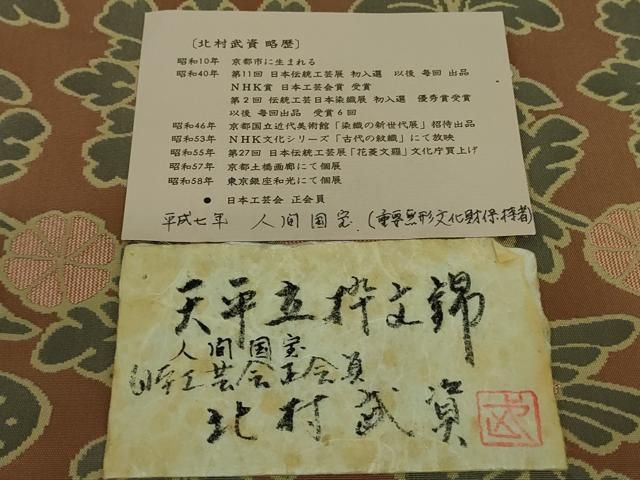 〔北村武資 略歴〕
昭和10年 京都市に生まれる
昭和40年 第11回 日本伝統工芸展 初入選 以後 毎回 出品
NHK賞 日本工芸会賞 受賞
第2回 伝統工芸日本染織展 初入選 優秀賞受賞
以後毎回出品 受賞6回
昭和46年 京都国立近代美術館「染織の新世代展」招待出品
昭和53年 NHK文化シリーズ「古代の紋織」にて放映
昭和55年 第27回 日本伝統工芸展「花菱文羅」文化庁買上げ
昭和57年 京都土橋画廊にて個展
昭和58年 東京銀座和光にて個展
● 日本工芸会 正会員
平成七年 人間国宝.(重要無形文化財保持者)
天平立枠文錦
人間国宝
日本工芸会正会員
北村武資
武